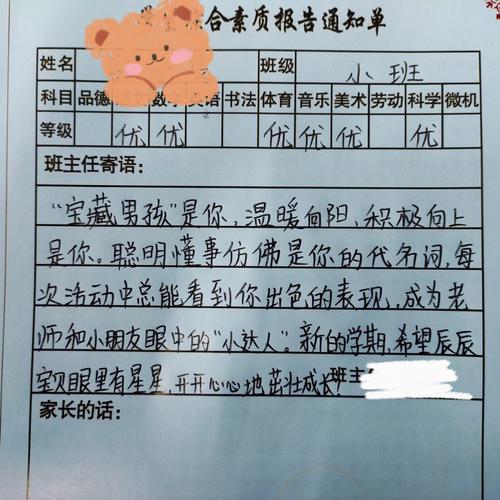 合素质报告通知单
姓名 班级 小班
科目 品德 数 语 书法 体育 音乐 美术 劳动 科学 微机
等级 优 优 优 优 优 优
班主任寄语：
“宝藏男孩”是你，温暖向阳，积极向上
是你。聪明懂事仿佛是你的代名词，每
次活动中总能看到你出色的表现，成为老
师和小朋友眼中的“小达人”。新的学期，希望辰辰
宝贝眼里有星星，开开心心地茁壮成长！ 班主
家长的话：